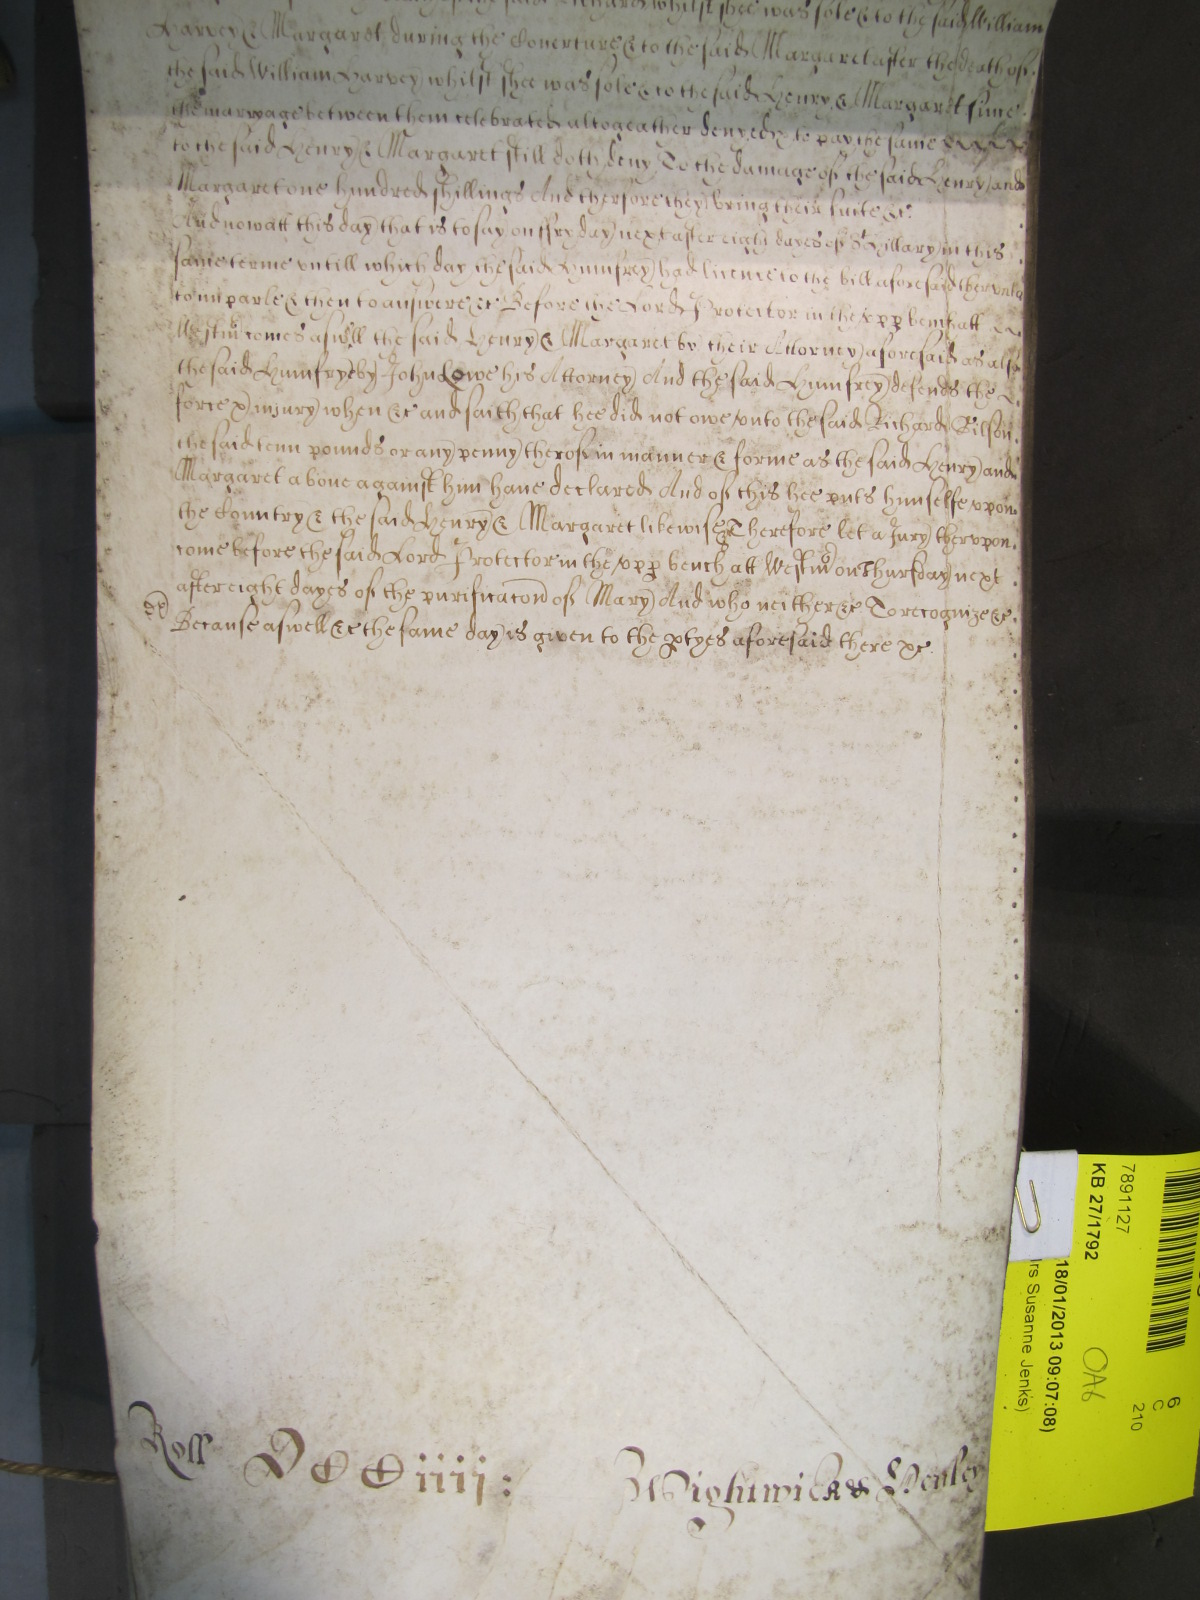 the said Richard whilst shee was sole & to the said William
Harvey & Margaret during the Coverture & to the said Margaret after the death of
the said William Harvey whilst shee was sole & to the said Henry & Margaret since
the marryage betweene them celebrated altogeather denyed & to pay the same
to the said Henry & Margaret still doth deny To the damage of the said Henry and
Margaret one hundred shillings And therfore they bring their suite &c
And now att this day that is to say on ffryday next after eight dayes of St Hillary in this
same terme untill which day the said Humfrey had licence to the bill aforesaid therunto
to imparle & then to answere &c Before the Lord Protector in the upp bench att
Westm comes aswell the said Henry & Margaret by their Attorney aforesaid as also
the said Humfry by John Lowe his Attorney And the said Humfrey defends the
force & injury when &c and saith that hee did not owe unto the said Richard Bilson
the said tenn pounds or any penny therof in manner & forme as the said Henry and
Margaret above against him have declared And of this hee puts himselfe upon
the Countrey & the said Henry & Margaret likewise Therefore let a Jury therupon
come before the said Lord Protector in the upp bench att Westm on Thursday next
after eight dayes of the purificacon of Mary And who neither &c To recognize &c
Because aswell &c the same day is given to the ptyes aforesaid there &c
Roll DCCiiii:
Wightwick & Henley
7891127
KB 27/1792
18/01/2013 09:07:08)
rs Susanne Jenks)
OA6
6
C
210